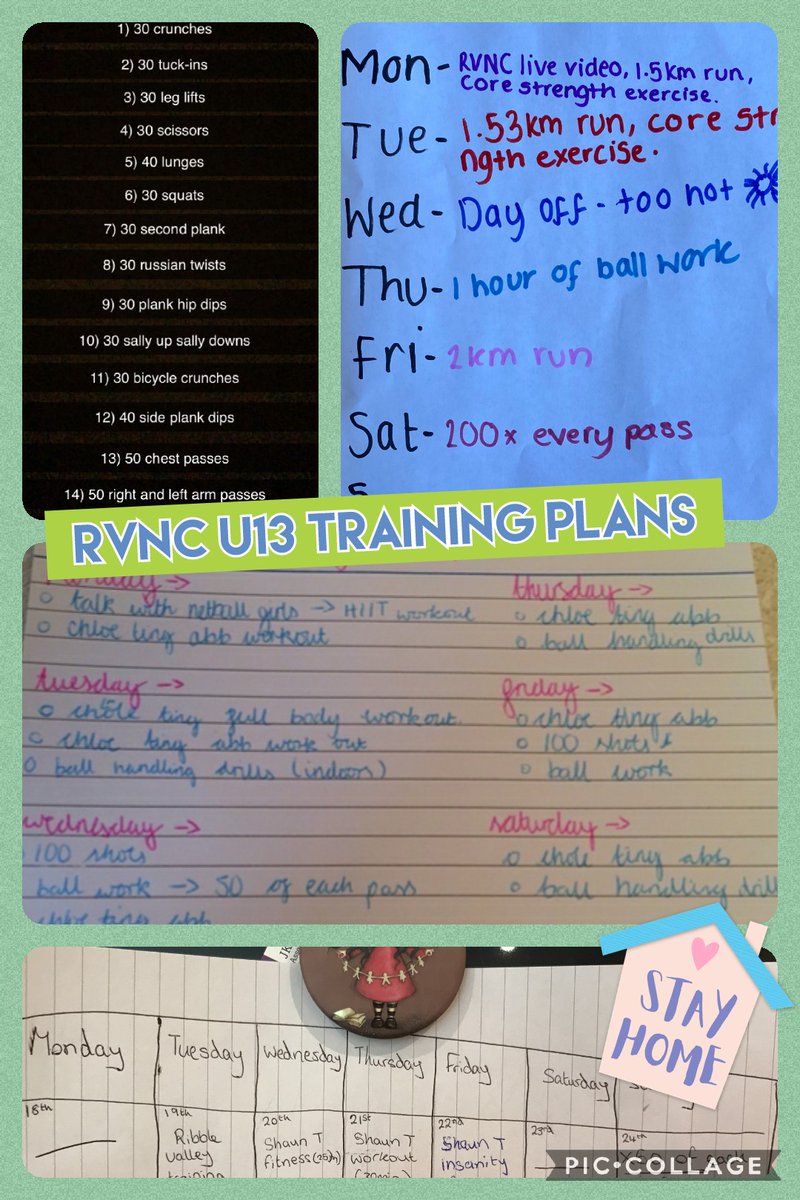 1) 30 crunches
2) 30 tuck-ins
3) 30 leg lifts
4) 30 scissors
5) 40 lunges
6) 30 squats
7) 30 second plank
8) 30 russian twists
9) 30 plank hip dips
10) 30 sally up sally downs
11) 30 bicycle crunches
12) 40 side plank dips
13) 50 chest passes
14) 50 right and left arm passes
Mon- RVNC live video, 1.5km run,
core strength exercise.
Tue- 1.53km run, core str
ngth exercise.
Wed- Day off - too hot
Thu- 1 hour of ball work
Fri- 2km run
Sat- 200x every pass
RVNC U13 TRAINING PLANS
monday ->
o talk with netball girls -> HIIT workout
o chloe ting abb workout
tuesday ->
o chloe ting full body workout.
o chloe ting abb work out
o ball handling drills (indoor)
wednesday ->
100 shots
ball work -> 50 of each pass
chloe ting abb
thursday ->
o chloe ting abb
o ball handling drills
friday ->
o chloe ting abb
o 100 shots
o ball work
saturday ->
o chloe ting abb
o ball handling drill
STAY
HOME
Monday Tuesday Wednesday Thursday Friday Saturday
18th 19th 20th 21st 22nd 23rd 24th
Ribble
valley
training
Shaun T
fitness (25m)
Shaun T
workout
Shaun T
insanity
PIC•COLLAGE